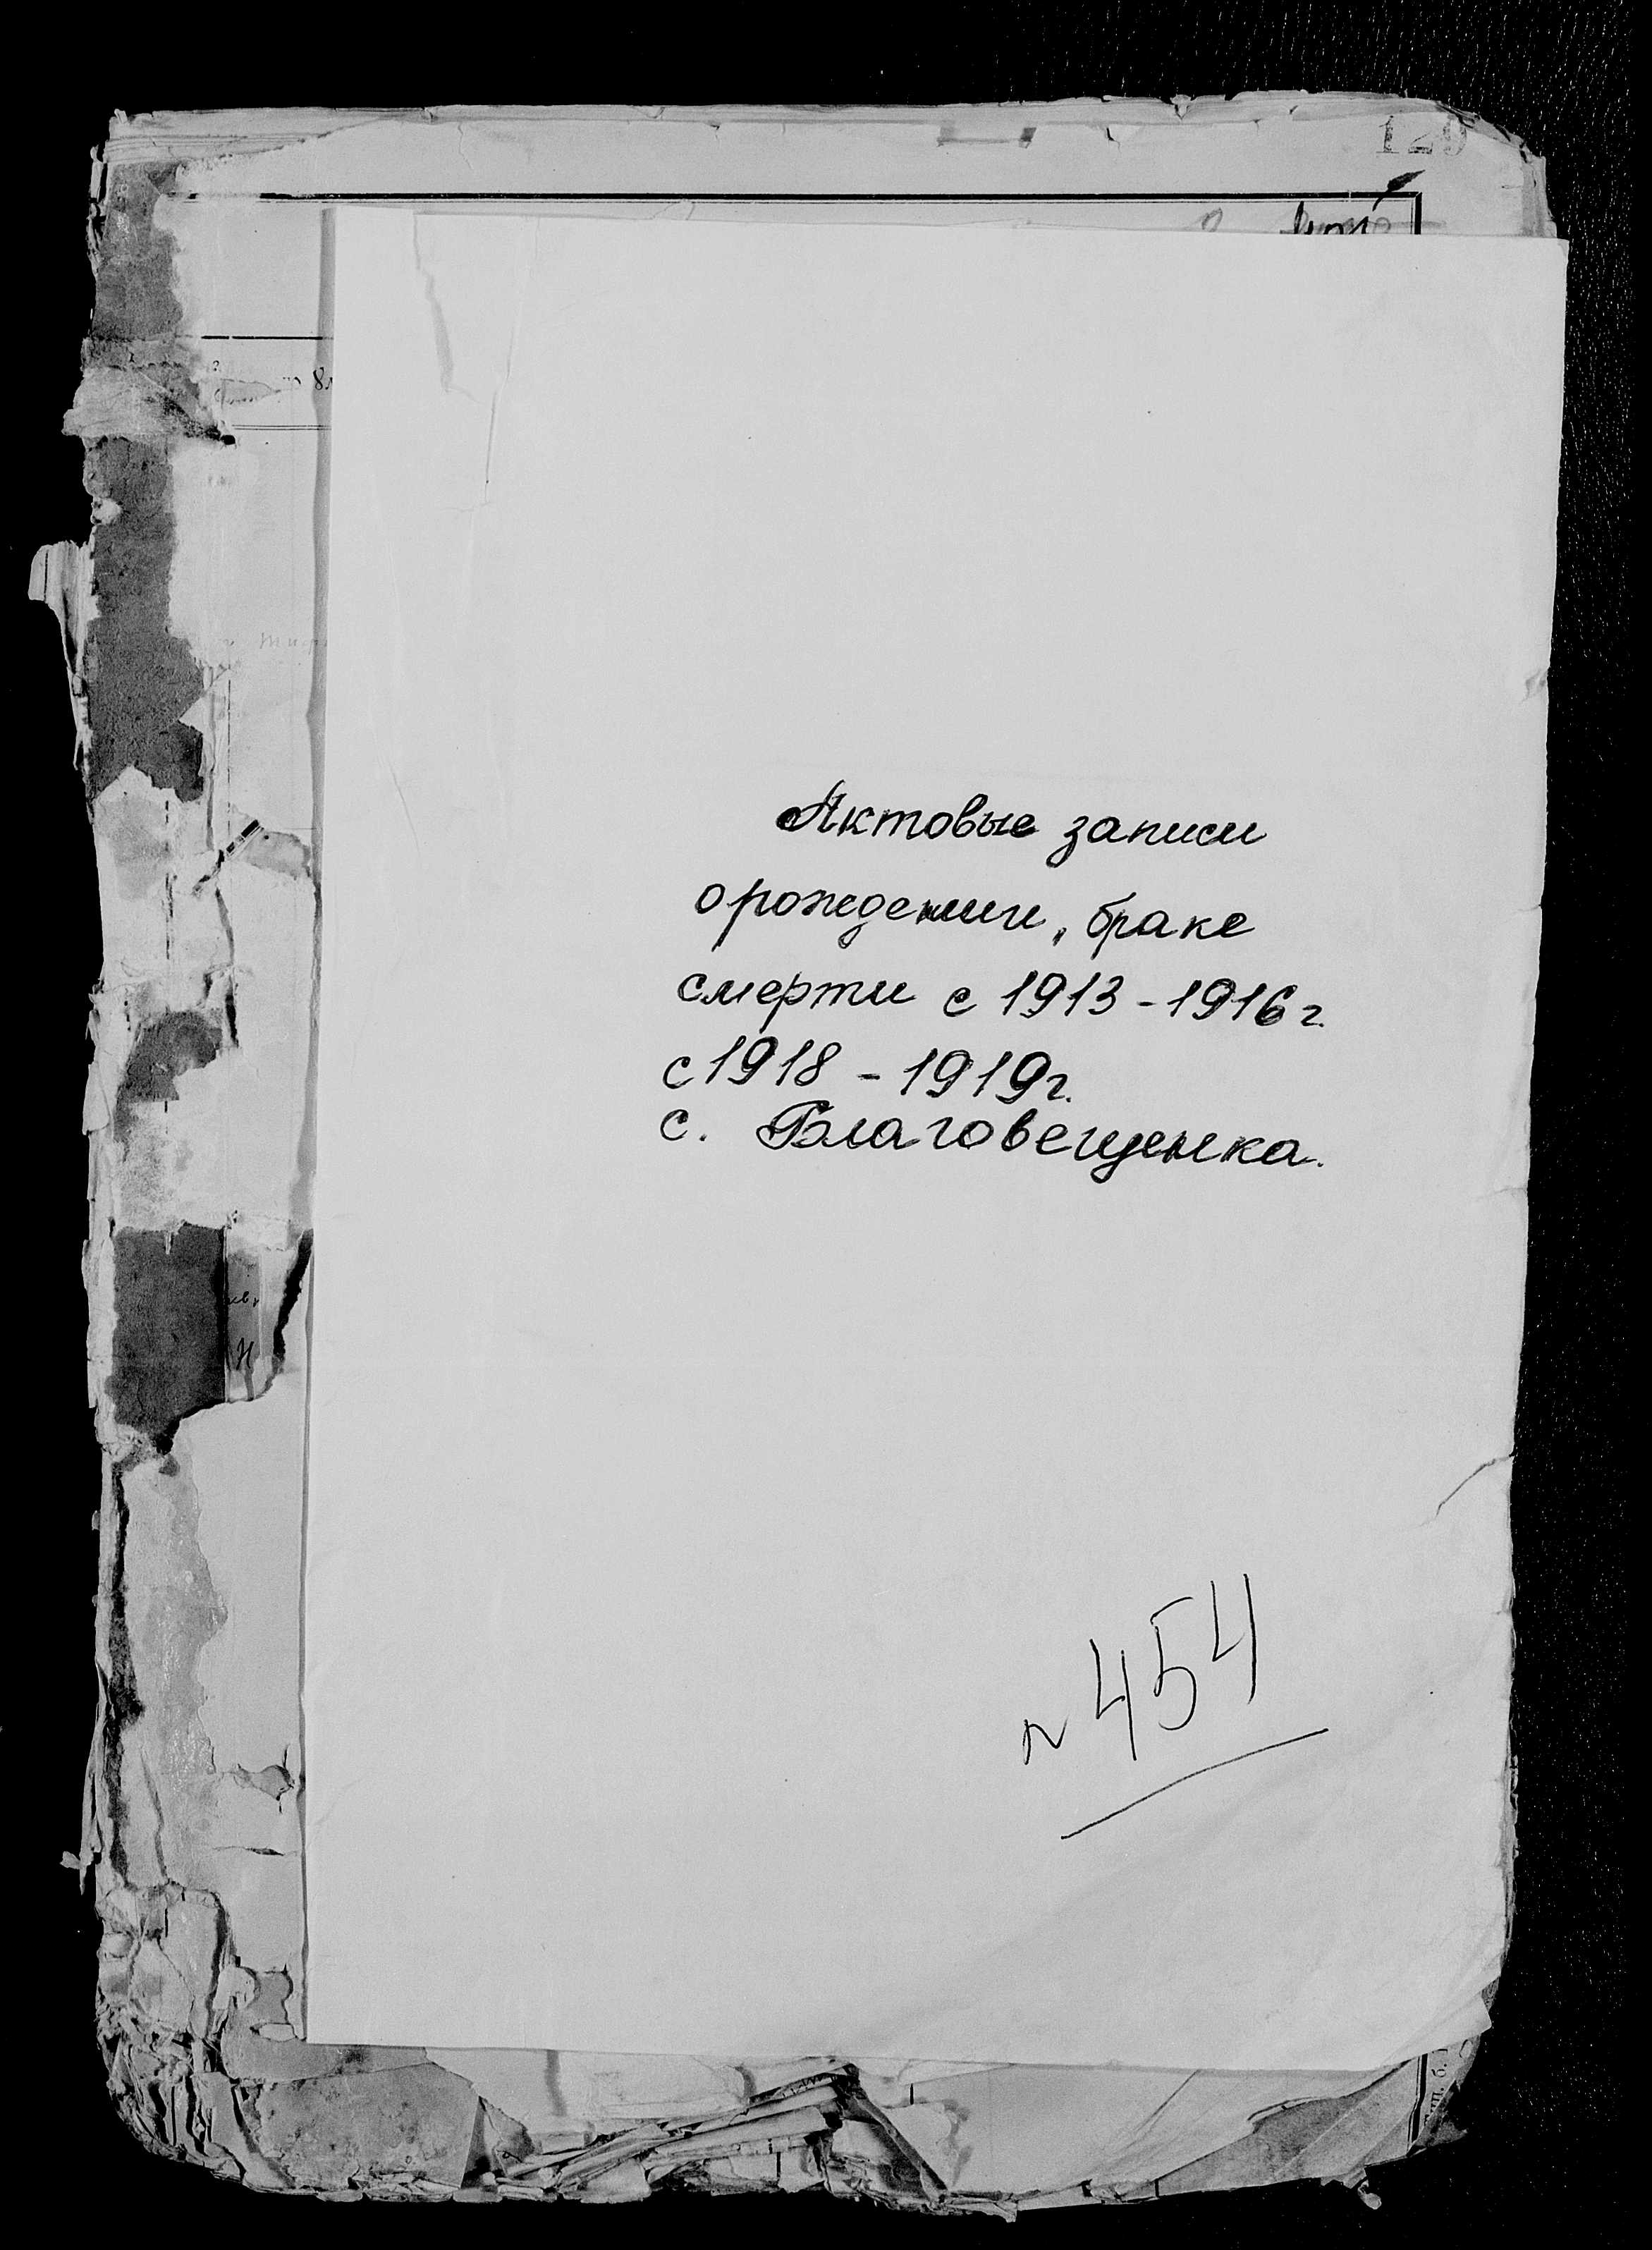 129
Актовые записи
о рождении, браке
смерти с 1913 - 1916 г.
с 1918 - 1919 г.
с. Благовещенка.
N 454